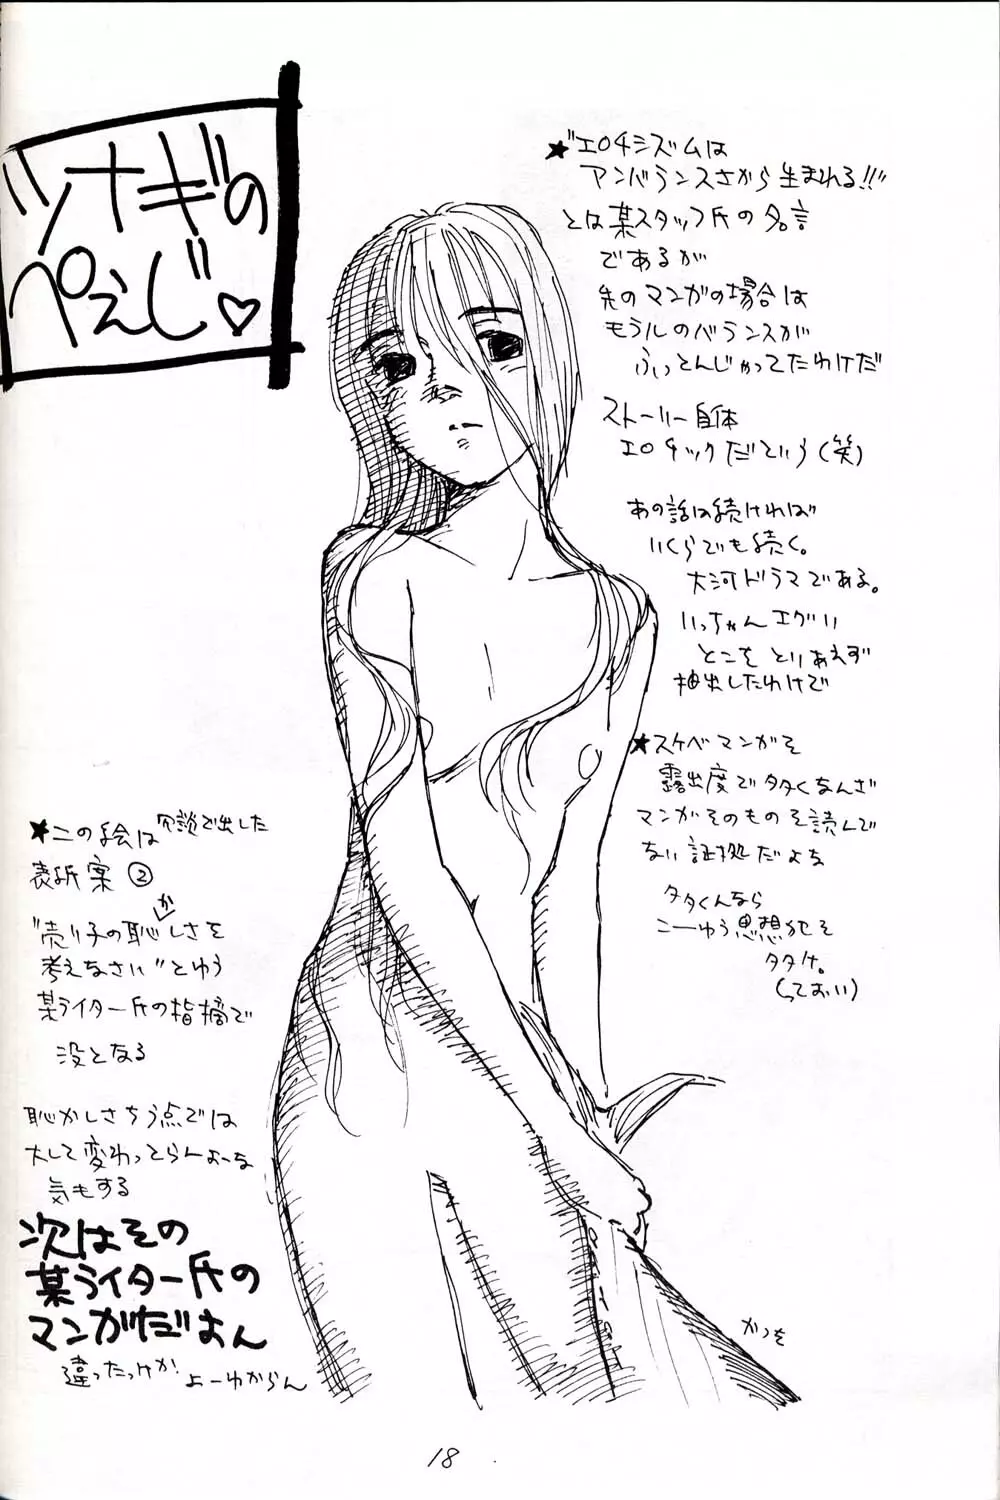 ツナギの
ぺぇじ♡
★"エロチシズムは
アンバランスさから生まれる!!"
とは某スタッフ氏の名言
であるが
先のマンガの場合は
モラルのバランスが
ふっとんじゃってたわけだ
ストーリー自体
エロチックだという(笑)
あの話は続ければ
いくらでも続く。
大河ドラマである。
いっちゃんエグい
とこを とりあえず
抽出したわけで
★スケベマンガを
露出度でタタくなんざ
マンガそのものを読んで
ない証拠だよな
タタくんなら
こーゆう思想犯を
タタけ。
(っておい)
★この絵は冗談で出した
表紙案②
"売り子の恥かしさを
考えなさい"とゆう
某ライター氏の指摘で
没となる
恥かしさちう点では
大して変わってらんよーな
気もする
次はその
某ライター氏の
マンガだよん
違ったっけか? よーわからん
かつを
18